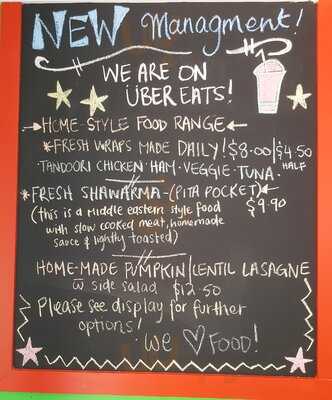 NEW Managment!
WE ARE ON
ÜBER EATS!
HOME-STYLE FOOD RANGE
*FRESH WRAPS MADE DAILY! $8.00 | $4.50
TANDOORI CHICKEN · HAM · VEGGIE · TUNA · HALF
*FRESH SHAWARMA - (PITA POCKET)
(this is a middle eastern style food $9.90
with slow cooked meat, homemade
sauce & lightly toasted)
HOME-MADE PUMPKIN | LENTIL LASAGNE
w side salad $12.50
Please see display for further
options!
· We ♡ FOOD!